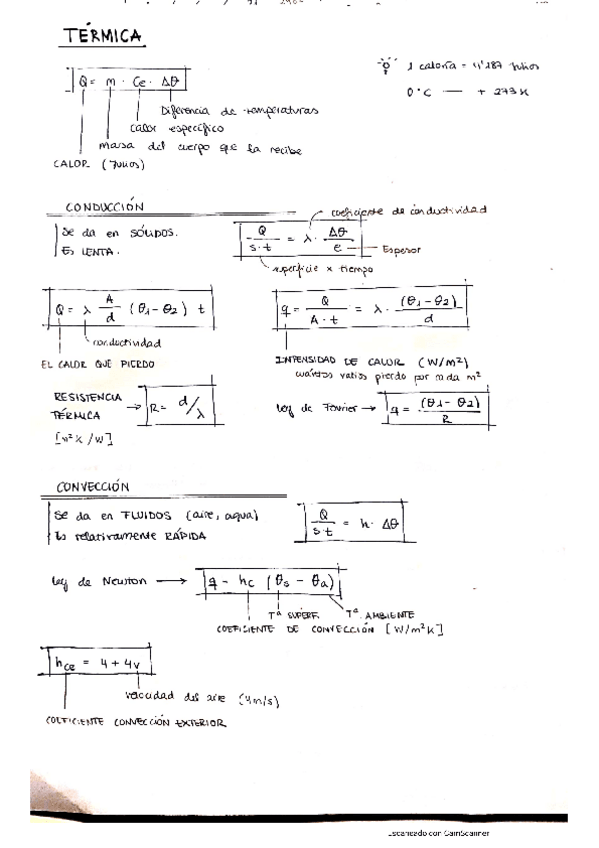 TÉRMICA
Q = m · Ce · Δθ
1 caloría = 4'187 Julios
0°C — + 273 K
Diferencia de temperaturas
Calor específico
masa del cuerpo que la recibe
CALOR (Julios)
CONDUCCIÓN
coeficiente de conductividad
Se da en SÓLIDOS.
Es LENTA.
Q / s·t = λ · Δθ / e
Espesor
superficie x tiempo
Q = λ A/d (θ1 - θ2) t
q = Q / A·t = λ · (θ1 - θ2) / d
conductividad
EL CALOR QUE PIERDO
INTENSIDAD DE CALOR (W/m²)
cuántos vatios pierdo por cada m²
RESISTENCIA TÉRMICA → R = d/λ
[m²K/W]
Ley de Fourier → q = (θ1 - θ2) / R
CONVECCIÓN
Se da en FLUIDOS (aire, agua)
Es relativamente RÁPIDA
Q / s·t = h · Δθ
Ley de Newton → q = hc (θs - θa)
Tª SUPERF.
Tª. AMBIENTE
COEFICIENTE DE CONVECCIÓN [W/m²K]
hce = 4 + 4v
velocidad del aire (4m/s)
COEFICIENTE CONVECCIÓN EXTERIOR
Escaneado con CamScanner